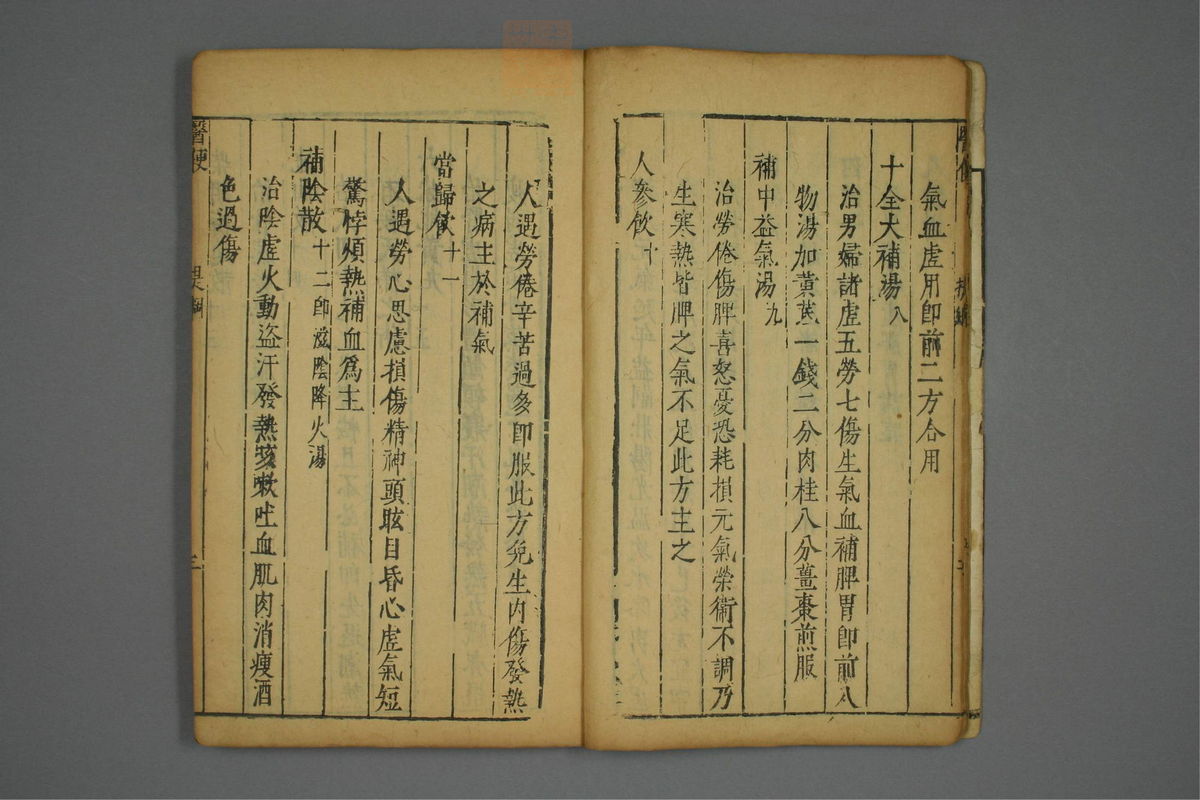 氣血虛用卽前二方合用
十全大補湯八
治男婦諸虛五勞七傷生氣血補脾胃卽前八
物湯加黃芪一錢二分肉桂八分薑棗煎服
補中益氣湯九
治勞倦傷脾喜怒憂恐耗損元氣榮衛不調乃
生寒熱皆脾之氣不足此方主之
人參飲十
人遇勞倦辛苦過多卽服此方免生內傷發熱
之病主於補氣
當歸飲十一
人遇勞心思慮損傷精神頭眩目昏心虛氣短
驚悸煩熱補血爲主
補陰散十二卽滋陰降火湯
治陰虛火動盜汗發熱咳嗽吐血肌肉消瘦酒
色過傷
醫便
提綱
三